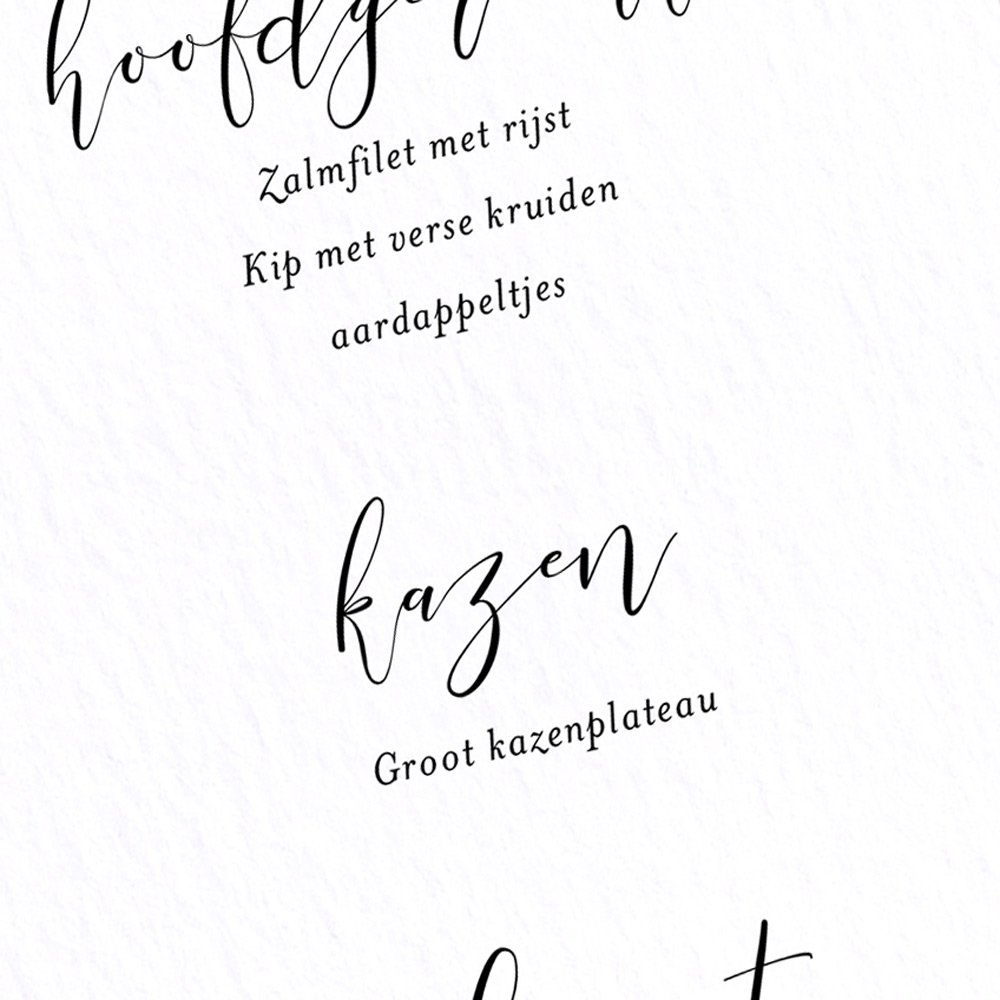 Zalmfilet met rijst
Kip met verse kruiden
aardappeltjes
kazen
Groot kazenplateau